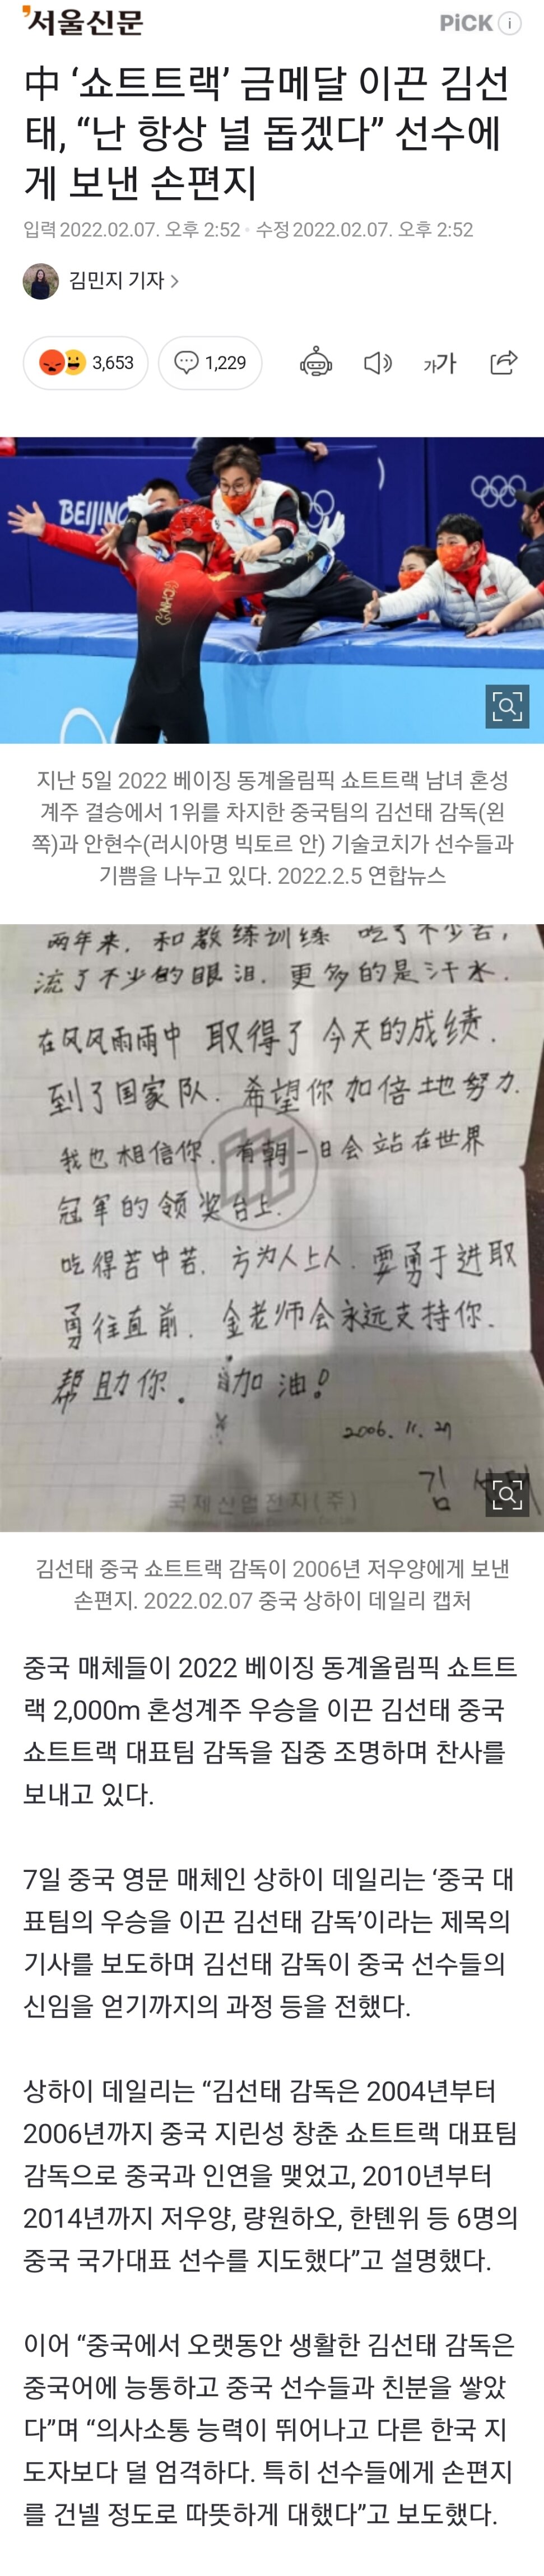 서울신문
PiCK
中 ‘쇼트트랙’ 금메달 이끈 김선
태, “난 항상 널 돕겠다” 선수에
게 보낸 손편지
입력 2022.02.07. 오후 2:52 · 수정 2022.02.07. 오후 2:52
김민지 기자
3,653
1,229
가가
BEIJING
CHN
지난 5일 2022 베이징 동계올림픽 쇼트트랙 남녀 혼성
계주 결승에서 1위를 차지한 중국팀의 김선태 감독(왼
쪽)과 안현수(러시아명 빅토르 안) 기술코치가 선수들과
기쁨을 나누고 있다. 2022.2.5 연합뉴스
两年来, 和教练训练 吃了不少苦,
流了不少的眼泪. 更多的是汗水.
在风风雨雨中 取得了今天的成绩.
到了国家队. 希望你加倍地努力.
我也相信你. 有朝一日会站在世界
冠军的领奖台上.
吃得苦中苦. 方为人上人. 要勇于进取
勇往直前. 金老师会永远支持你.
帮助你. 加油!
2006. 11. 27
김
국제산업전지(주)
김선태 중국 쇼트트랙 감독이 2006년 저우양에게 보낸
손편지. 2022.02.07 중국 상하이 데일리 캡처
중국 매체들이 2022 베이징 동계올림픽 쇼트트
랙 2,000m 혼성계주 우승을 이끈 김선태 중국
쇼트트랙 대표팀 감독을 집중 조명하며 찬사를
보내고 있다.
7일 중국 영문 매체인 상하이 데일리는 ‘중국 대
표팀의 우승을 이끈 김선태 감독’이라는 제목의
기사를 보도하며 김선태 감독이 중국 선수들의
신임을 얻기까지의 과정 등을 전했다.
상하이 데일리는 “김선태 감독은 2004년부터
2006년까지 중국 지린성 창춘 쇼트트랙 대표팀
감독으로 중국과 인연을 맺었고, 2010년부터
2014년까지 저우양, 량원하오, 한톈위 등 6명의
중국 국가대표 선수를 지도했다”고 설명했다.
이어 “중국에서 오랫동안 생활한 김선태 감독은
중국어에 능통하고 중국 선수들과 친분을 쌓았
다”며 “의사소통 능력이 뛰어나고 다른 한국 지
도자보다 덜 엄격하다. 특히 선수들에게 손편지
를 건넬 정도로 따뜻하게 대했다”고 보도했다.